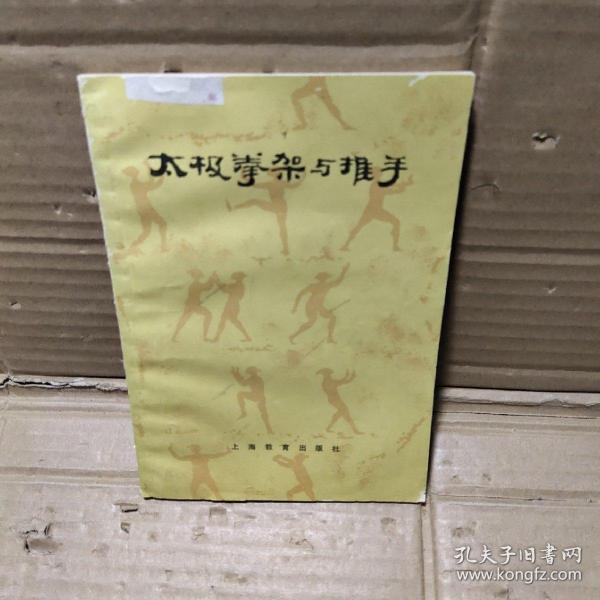 太极拳架与推手
上海教育出版社
孔夫子旧書网
www.kongfz.com